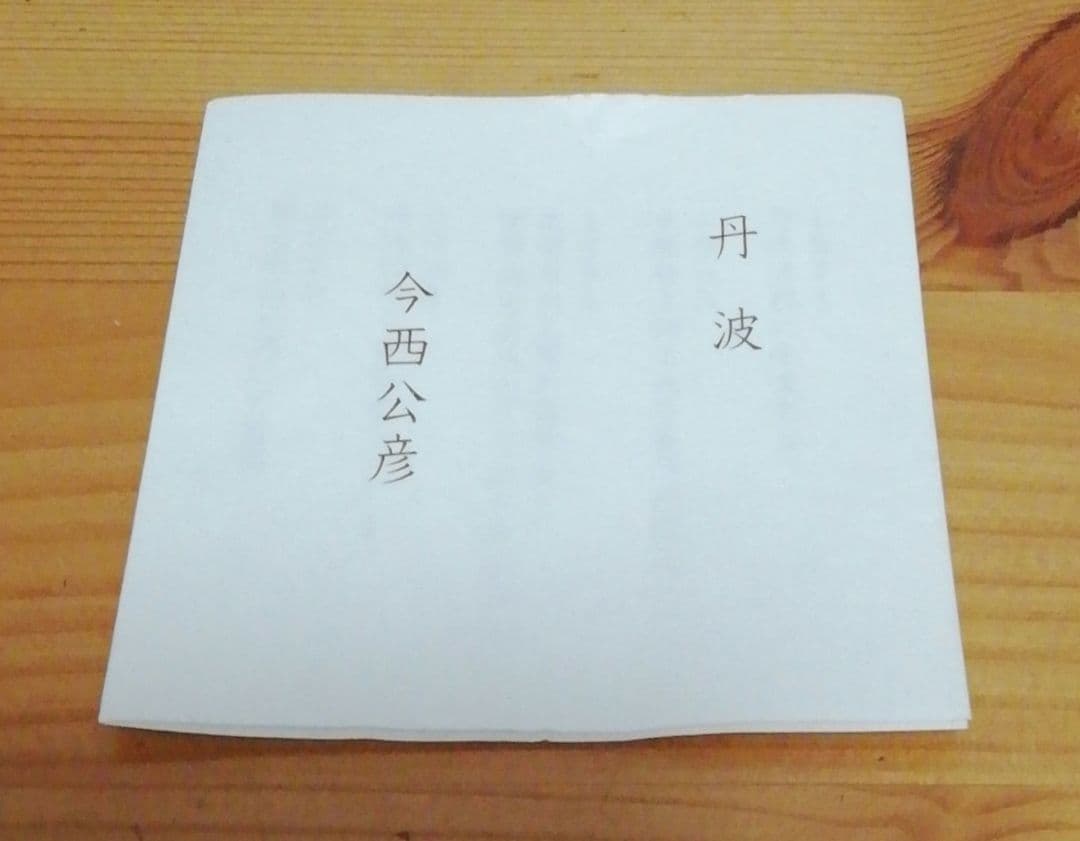 丹波
今西公彦